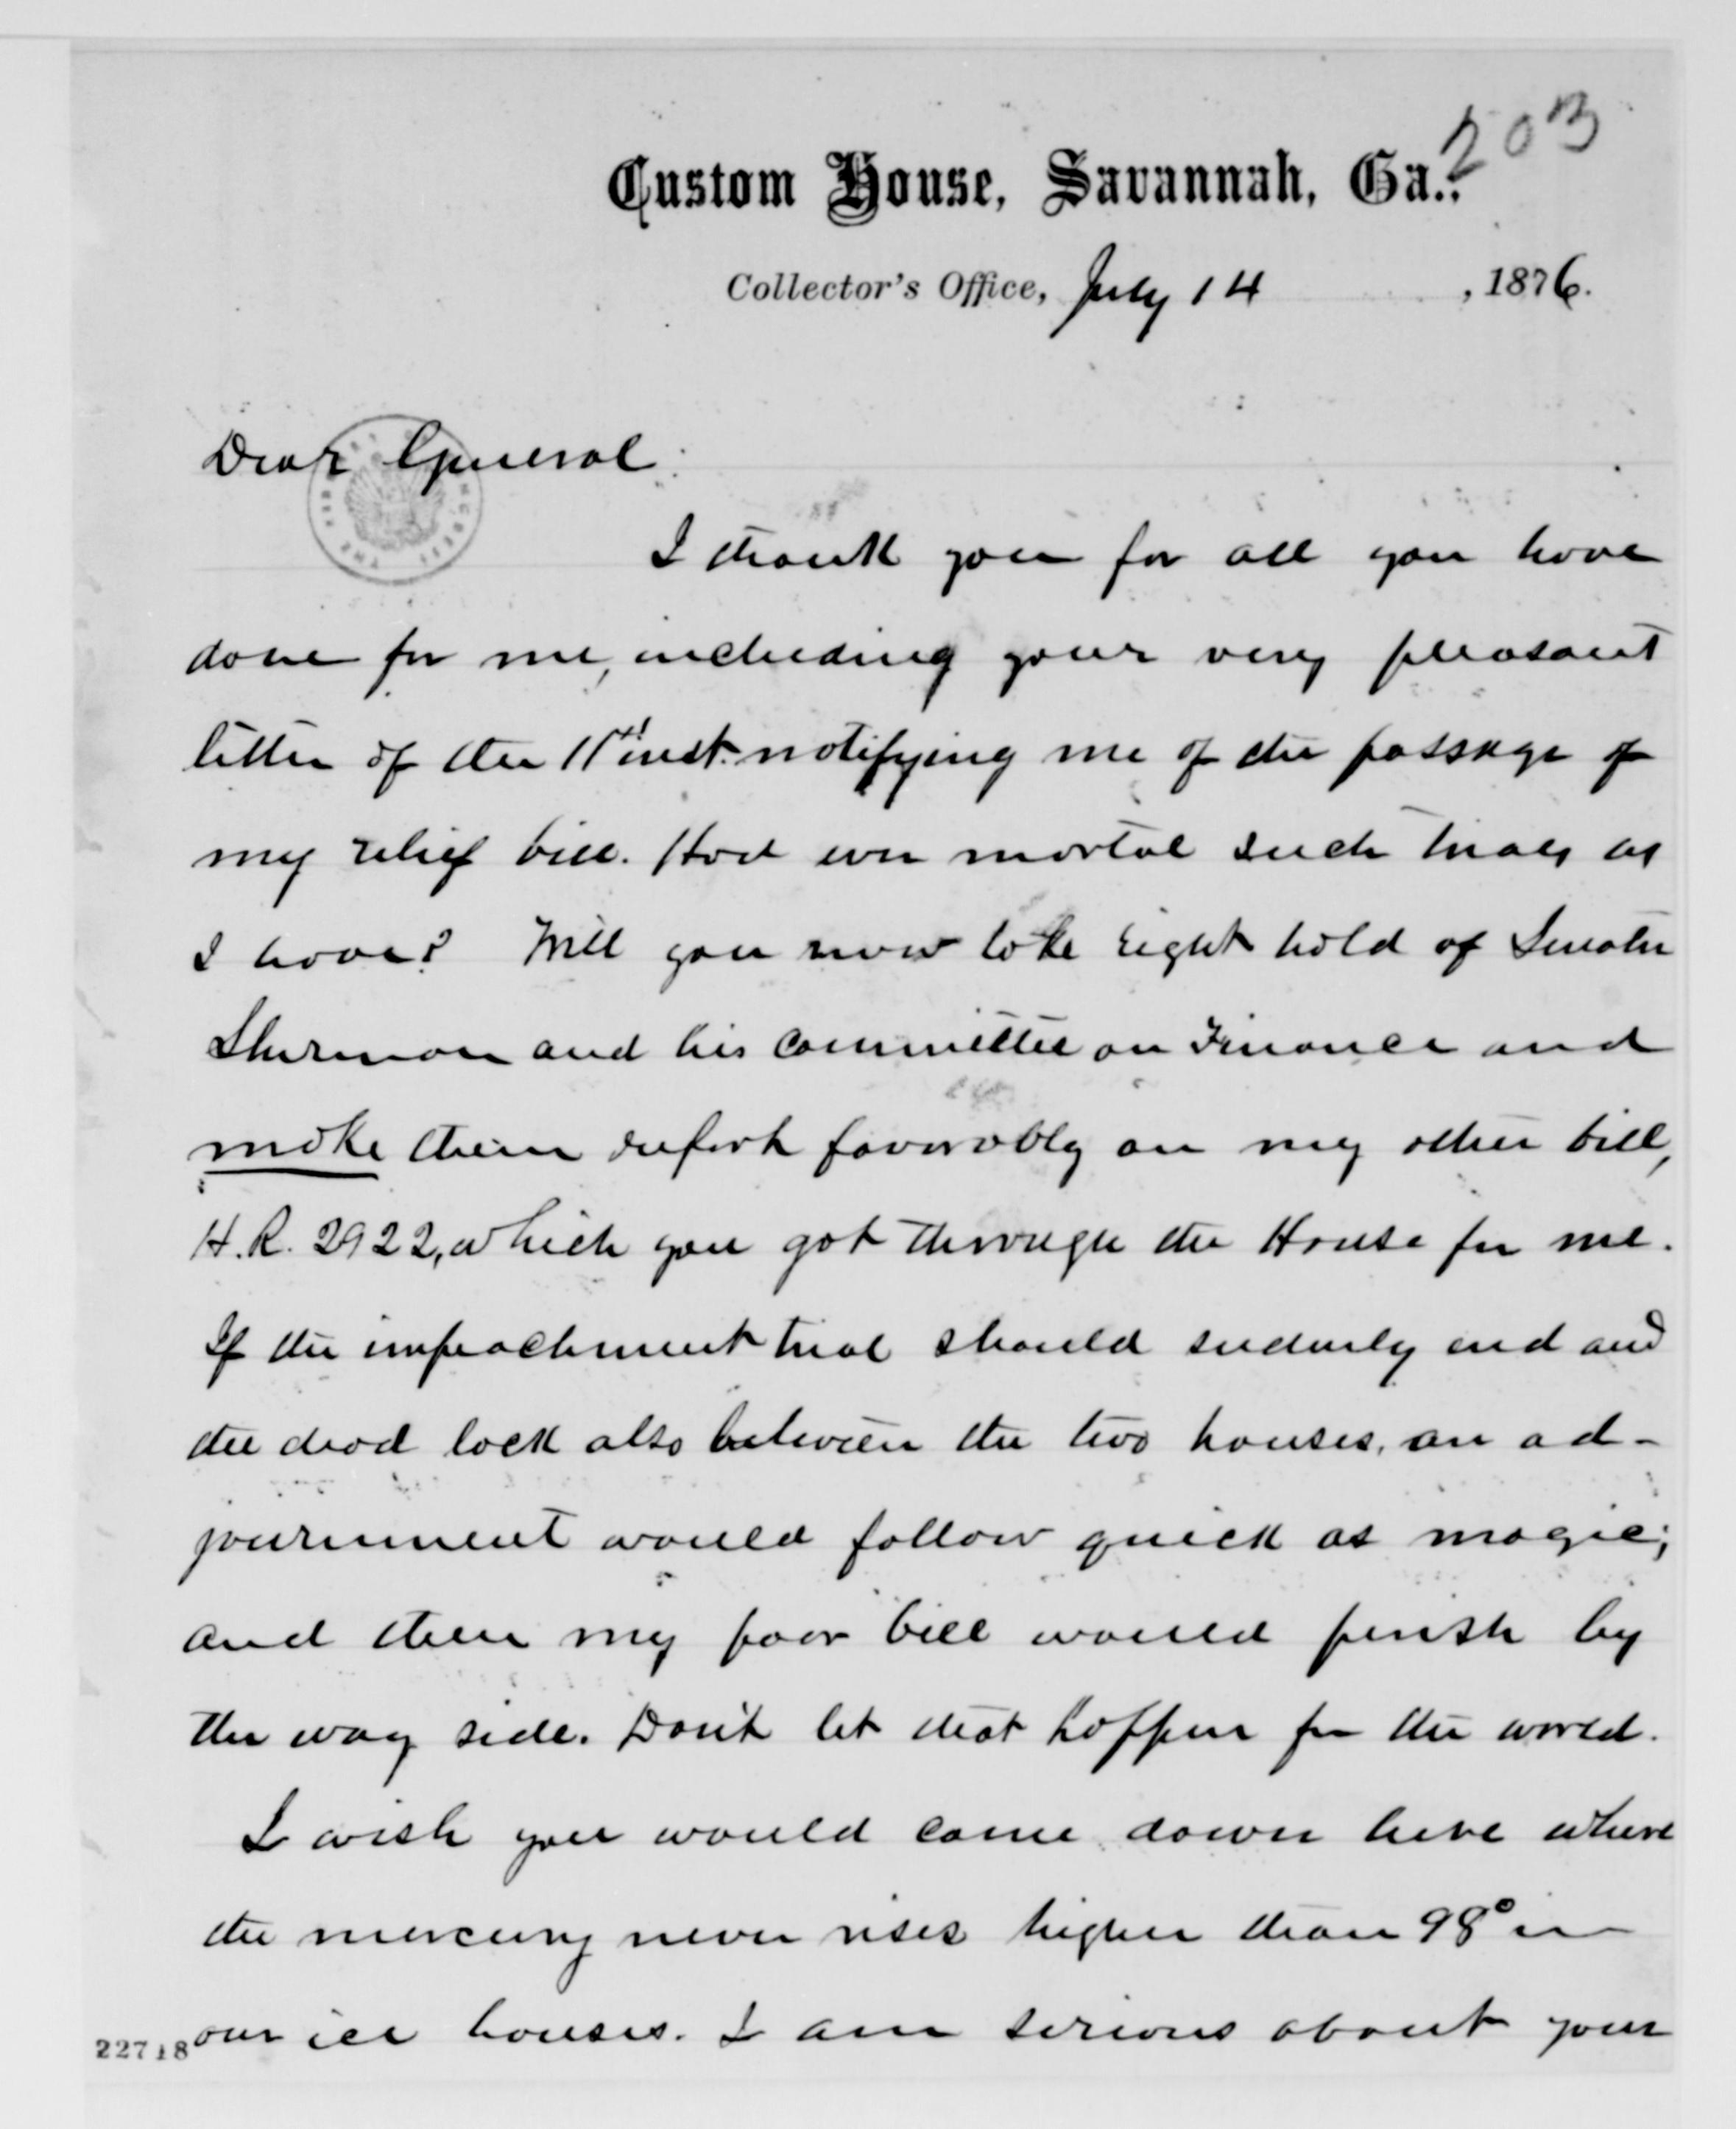 203
Custom House, Savannah, Ga.,
Collector's Office, July 14, 1876.
Dear General:
I thank you for all you have
done for me, including your very pleasant
letter of the 11th inst. notifying me of the passage of
my relief bill. Had ever mortal such trials as
I have? Will you now take right hold of Senator
Sherman and his committee on Finance and
make them report favorably on my other bill,
H.R. 2922, which you got through the House for me.
If the impeachment trial should sudenly end and
the dead lock also between the two houses, an ad-
journment would follow quick as magic;
and then my poor bill would perish by
the way side. Don't let that happen for the world.
I wish you would come down here where
the mercury never rises higher than 98° in
our ice houses. I am serious about your
22718